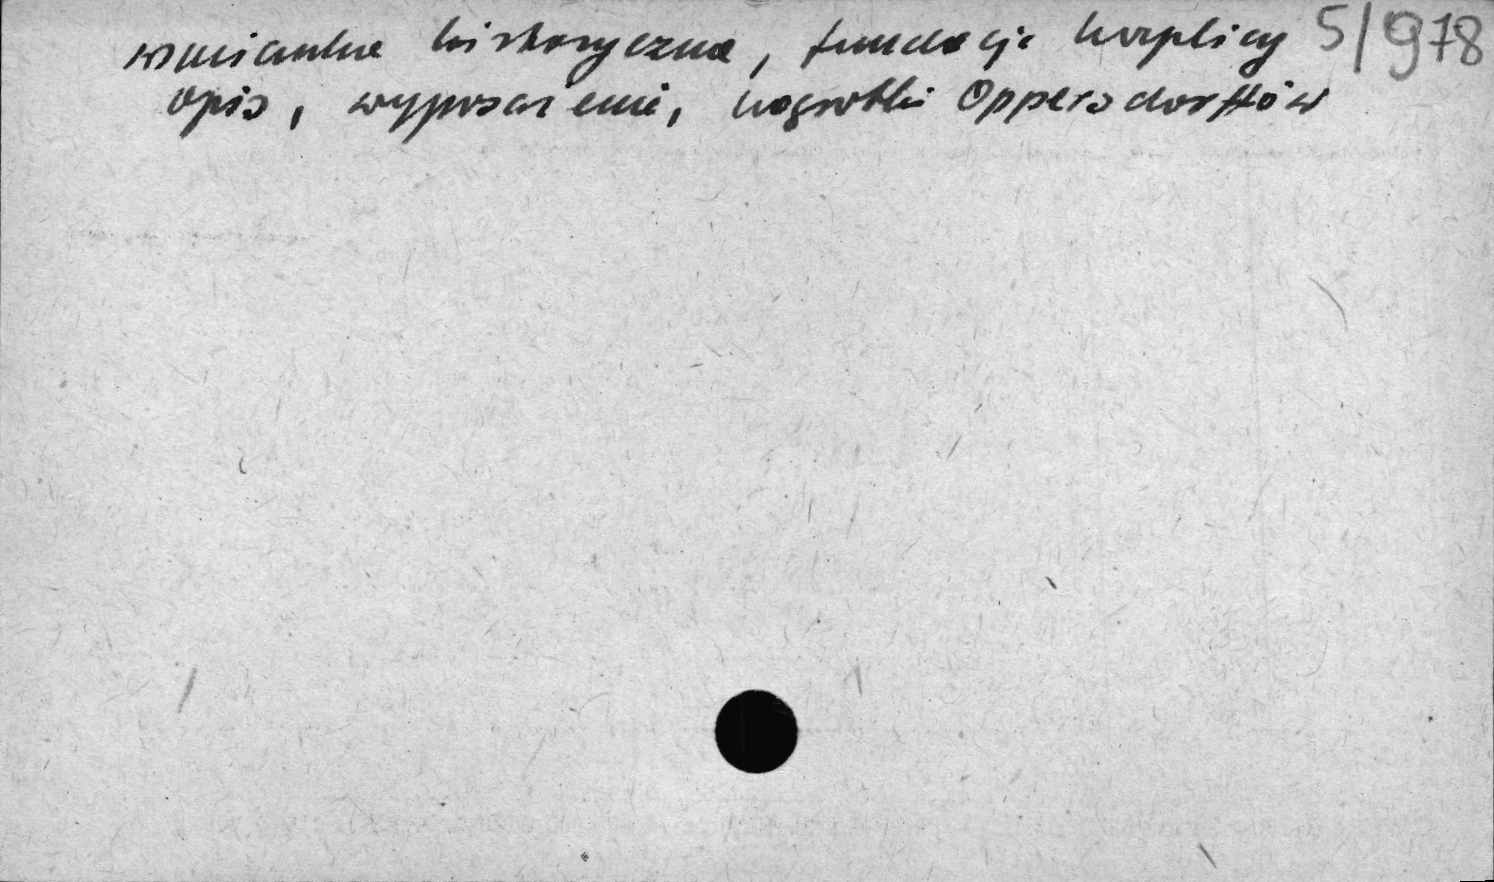 wzmianka historyczna, fundacja kaplicy 5/978
opis, wyposażenie, nagrobki Oppersdorffów